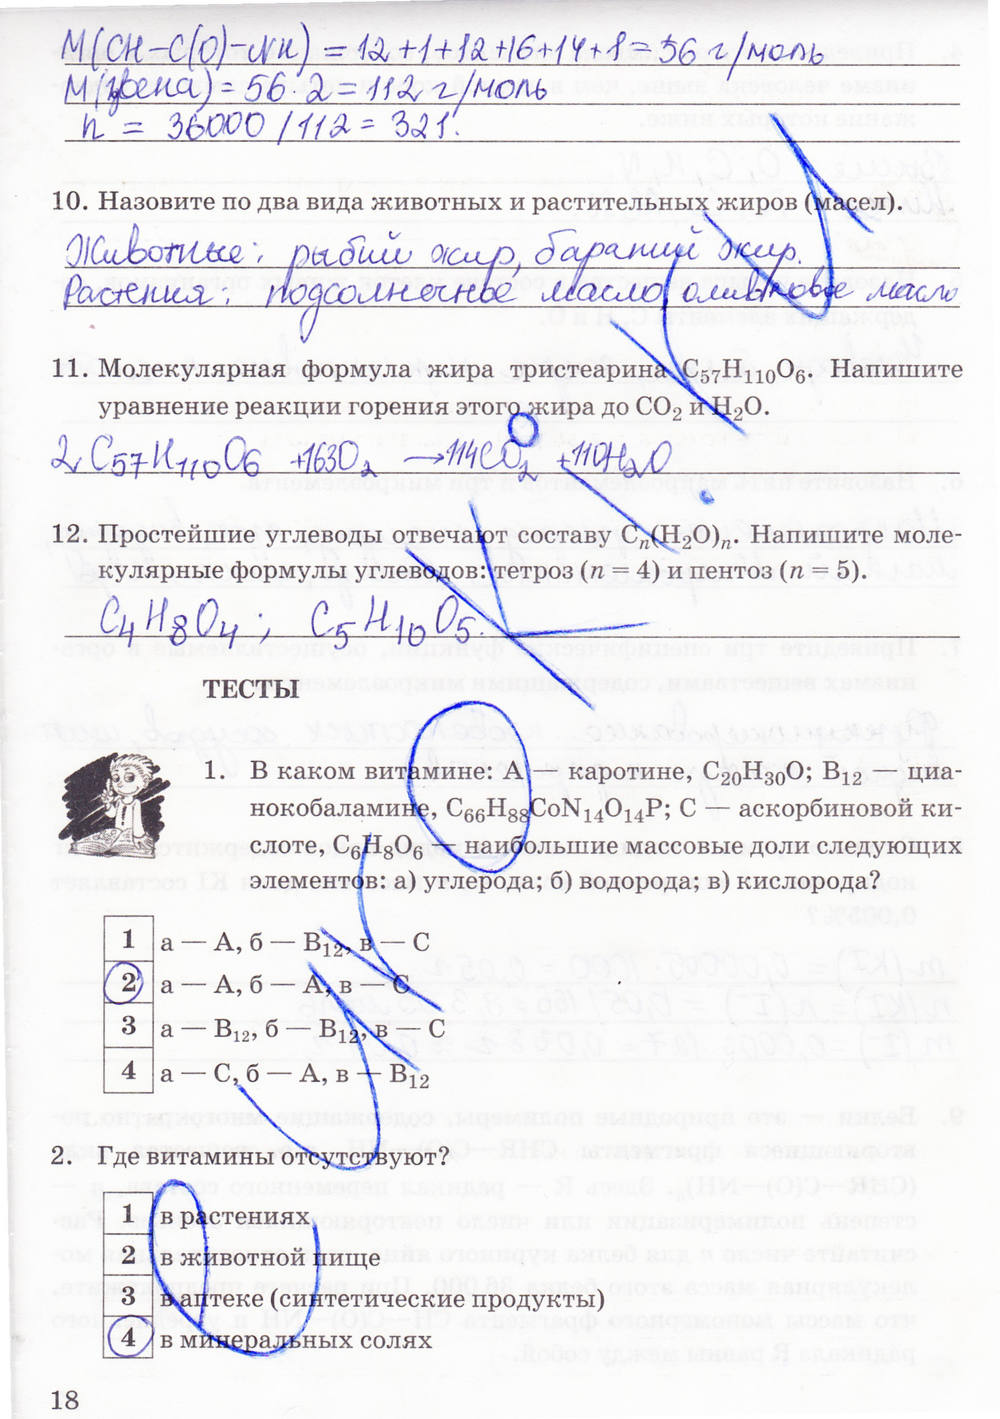 M(CH-C(O)-NH) = 12+1+12+16+14+1 = 56 г/моль
M(звена) = 56·2 = 112 г/моль
n = 36000/112 = 321.
10. Назовите по два вида животных и растительных жиров (масел).
Животные: рыбий жир, бараний жир.
Растения: подсолночное масло, оливковое масло
11. Молекулярная формула жира тристеарина C57H110O6. Напишите
уравнение реакции горения этого жира до CO2 и H2O.
2C57H110O6 +163O2 → 114CO2 +110H2O
12. Простейшие углеводы отвечают составу Cn(H2O)n. Напишите моле-
кулярные формулы углеводов: тетроз (n = 4) и пентоз (n = 5).
C4H8O4; C5H10O5.
ТЕСТЫ
1. В каком витамине: А — каротине, C20H30O; B12 — циа-
нокобаламине, C66H88CoN14O14P; С — аскорбиновой ки-
слоте, C6H8O6 — наибольшие массовые доли следующих
элементов: а) углерода; б) водорода; в) кислорода?
1 а — А, б — B12, в — С
2 а — А, б — А, в — С
3 а — B12, б — B12, в — С
4 а — С, б — А, в — B12
2. Где витамины отсутствуют?
1 в растениях
2 в животной пище
3 в аптеке (синтетические продукты)
4 в минеральных солях
18